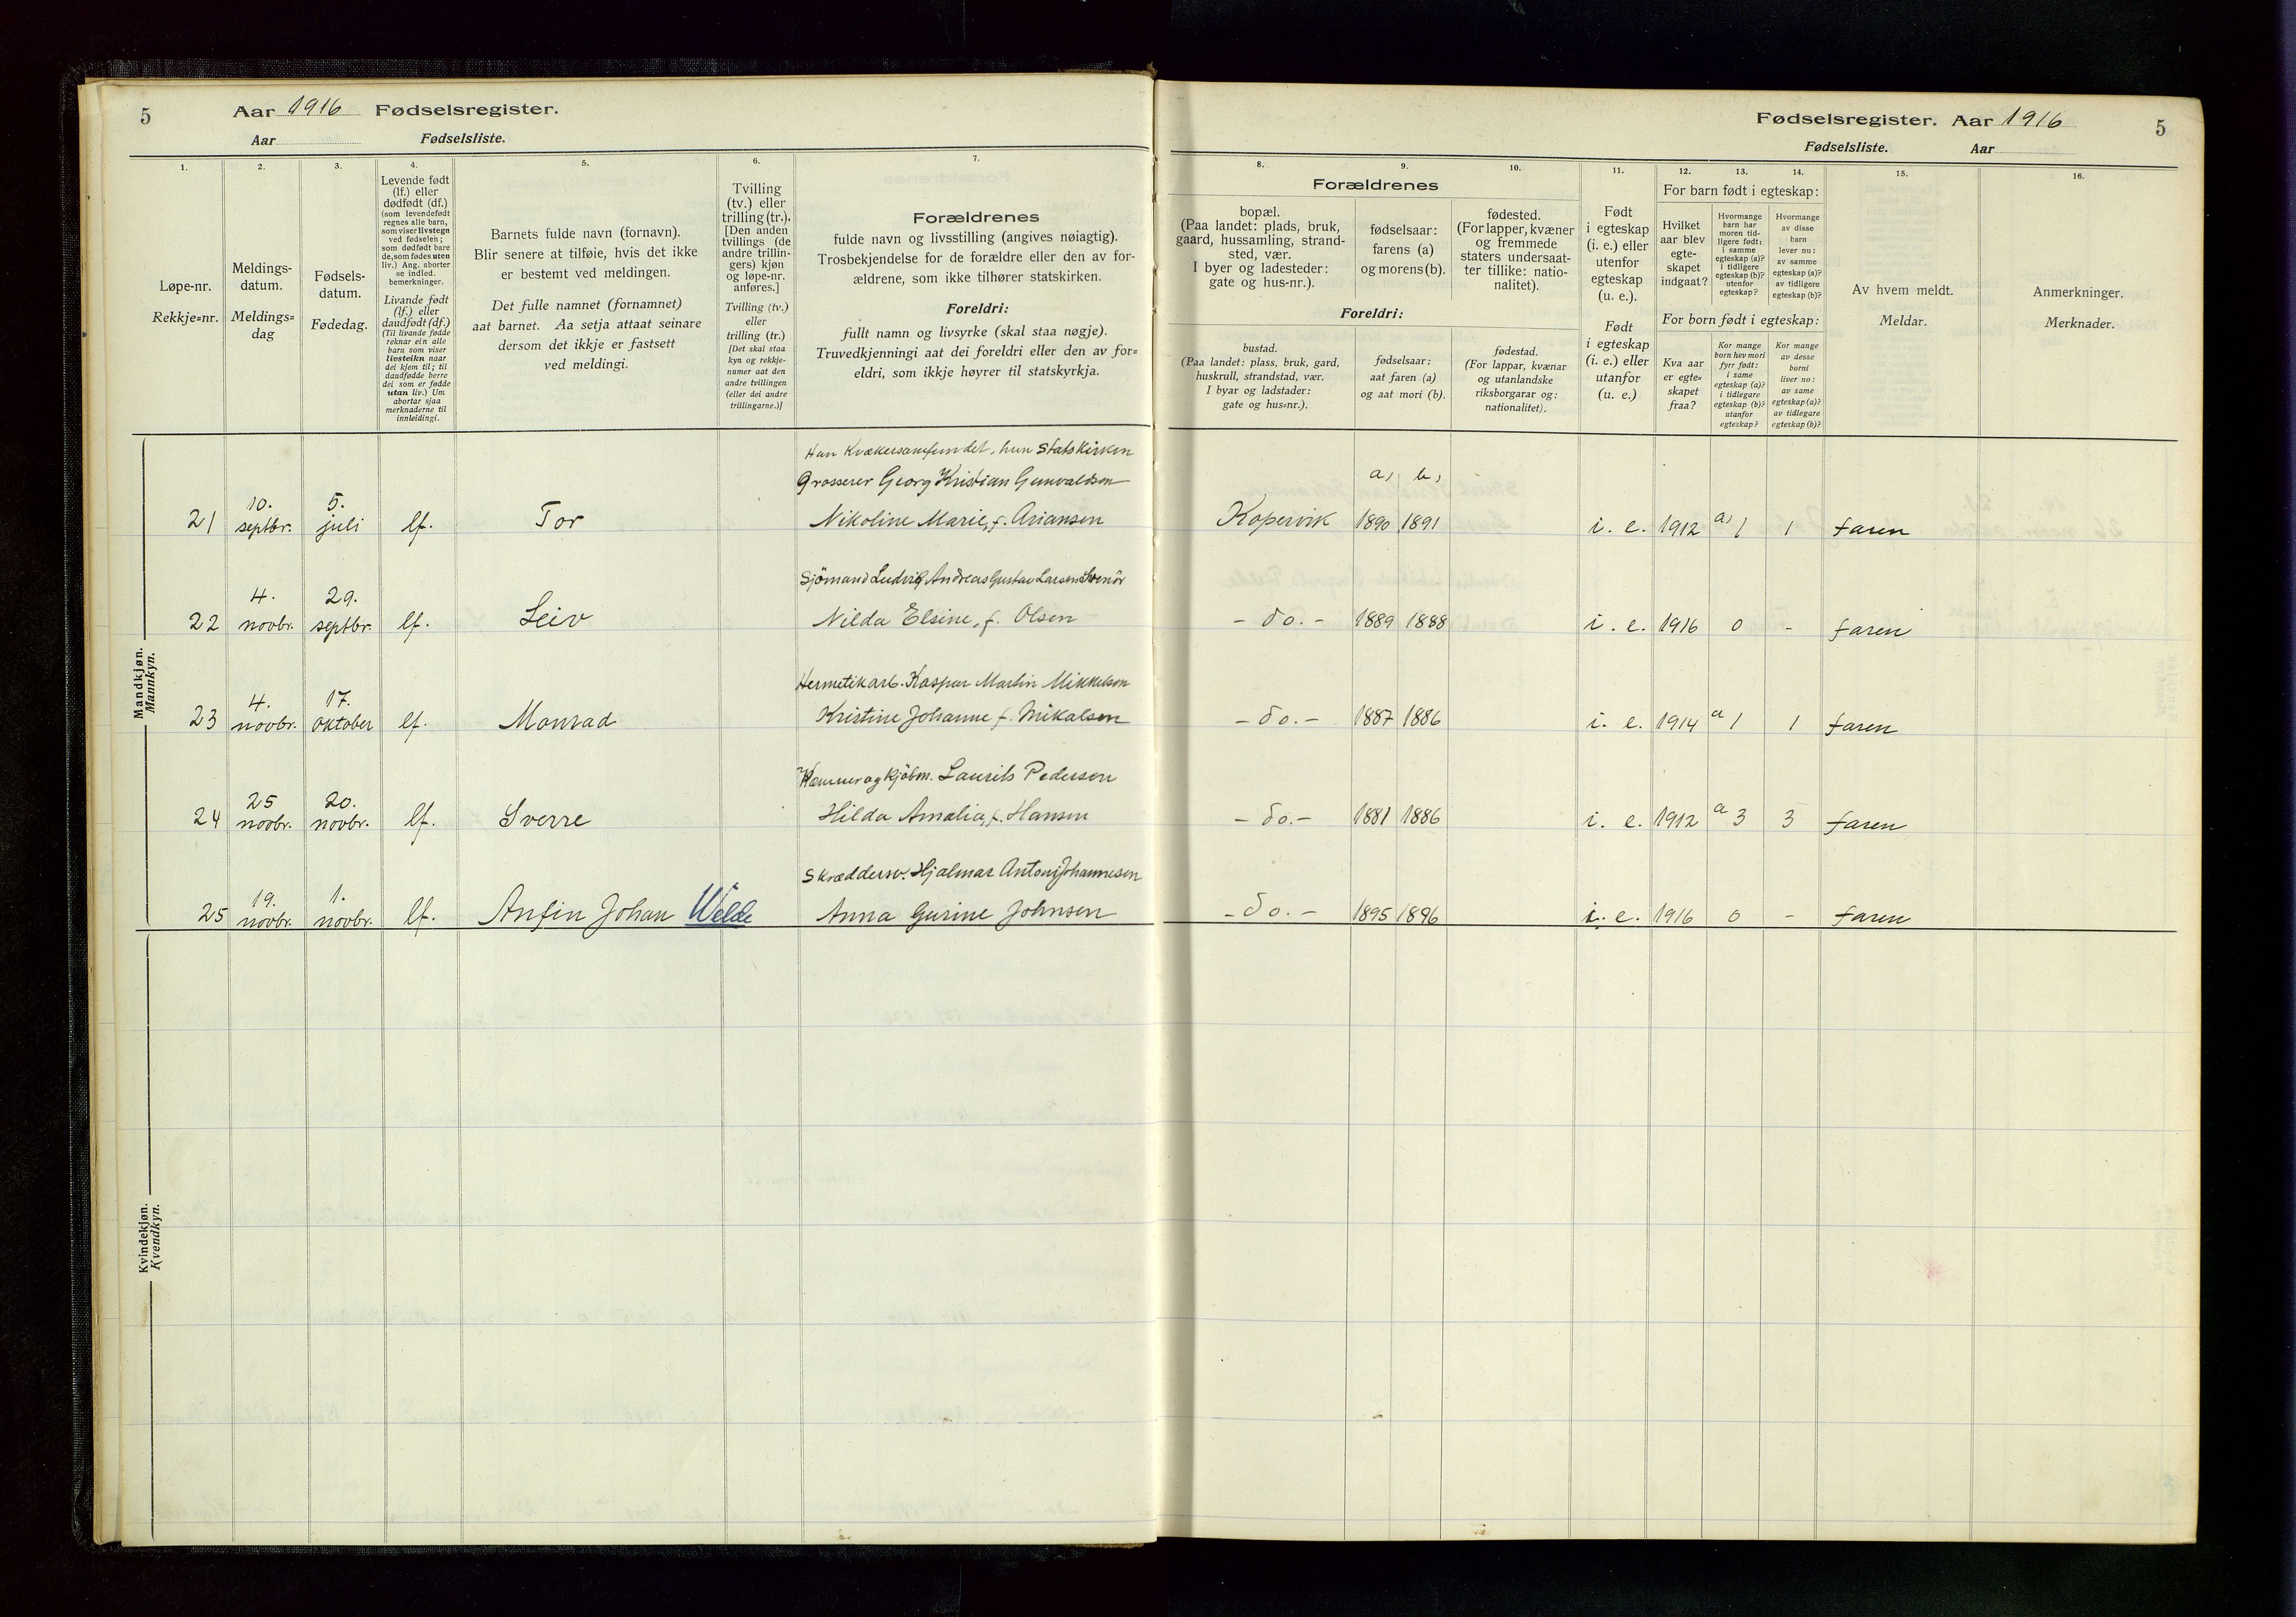 5 Aar 1916 Fødselsregister.
Aar Fødselsliste.
Fødselsregister. Aar 1916 5
Fødselsliste. Aar
1.
Løpe-nr.
Rekkje=nr.
2.
Meldings-
datum.
Meldings=
dag
3.
Fødsels-
datum.
Fødedag.
4.
Levende født
(lf.) eller
dødfødt (df.)
(som levendefødt
regnes alle barn,
som viser livstegn
ved fødselen;
som dødfødt bare
de, som fødes uten
liv.) Ang. aborter
se indled.
bemerkninger.
Livande født
(lf.) eller
daudfødt (df.)
(Til livande fødde
reknar ein alle
barn som viser
livsteikn naar
dei kjem til; til
daudfødde berre
dei som er fødde
utan liv.) Um
abortar sjaa
merknaderne til
innleidingi.
5.
Barnets fulde navn (fornavn).
Blir senere at tilføie, hvis det ikke
er bestemt ved meldingen.
Det fulle namnet (fornamnet)
aat barnet. Aa setja attaat seinare
dersom det ikkje er fastsett
ved meldingi.
6.
Tvilling
(tv.) eller
trilling (tr.).
[Den anden
tvillings (de
andre trillin-
gers) kjøn
og løpe-nr.
anføres.]
Tvilling (tv.)
eller
trilling (tr.)
[Det skal staa
kyn og rekkje-
numer aat den
andre tvillingen
(eller dei andre
trillingarne.)]
7.
Forældrenes
fulde navn og livsstilling (angives nøiagtig).
Trosbekjendelse for de forældre eller den av for-
ældrene, som ikke tilhører statskirken.
Foreldri:
fullt namn og livsyrke (skal staa nøgje).
Truvedkjenningi aat dei foreldri eller den av for=
eldri, som ikkje høyrer til statskyrkja.
8. 9. 10.
Forældrenes
bopæl.
(Paa landet: plads, bruk,
gaard, hussamling, strand-
sted, vær.
I byer og ladesteder:
gate og hus-nr.).
fødselsaar:
farens (a)
og morens (b).
fødested.
(For lapper, kvæner
og fremmede
staters undersaat-
ter tillike: natio-
nalitet).
Foreldri:
bustad.
(Paa landet: plass, bruk, gard,
huskrull, strandstad, vær.
I byar og ladstader:
gate og hus=nr.).
fødselsaar:
aat faren (a)
og aat mori (b).
fødestad.
(For lappar, kvænar
og utanlandske
riksborgarar og:
nationalitet).
11.
Født
i egteskap
(i. e.) eller
utenfor
egteskap
(u. e.).
Født
i egteskap
(i. e.) eller
utanfor
(u. e.)
12. 13. 14.
For barn født i egteskap:
Hvilket
aar blev
egte-
skapet
indgaat?
Hvormange
barn har
moren tid-
ligere født:
i samme
egteskap (a)?
i tidligere
egteskap (b)?
utenfor
egteskap?
Hvormange
av disse
barn
lever nu:
av samme
egteskap (a)?
av tidligere
egteskap (b)?
For born født i egteskap:
Kva aar
er egte=
skapet
fraa?
Kor mange
born hev mori
fyrr født:
i same
egteskap (a)?
i tidlegare
egteskap (b)?
utanfor
egteskap?
Kor mange
av desse
borni
liver no:
av same
egteskap (a)?
av tidlegare
egteskap (b)?
15.
Av hvem meldt.
Meldar.
16.
Anmerkninger.
Merknader.
Mandkjøn.
Mannkyn.
Han Kvækersamfundet, hun Statskirken
Grosserer Georg Kristian Gunvaldsen a, b,
21 10. septbr. 5. juli lf. Tor Nikoline Marie, f. Ariansen Kopervik 1890 1891 i. e. 1912 a, 1 1 faren
Sjömand Ludvig Andreas Gustav Larsen Svenör
22 4. novbr. 29. septbr. lf. Leiv Nilda Elsine, f. Olsen - do. - 1889 1888 i. e. 1916 0 - faren
Hermetikarb. Kaspar Martin Mikkelsen
23 4. novbr. 17. oktober lf. Monrad Kristine Johanne f. Mikalsen - do. - 1887 1886 i. e. 1914 a 1 1 faren
Kæmner og kjøbm. Laurits Pedersen
24 25 novbr. 20. novbr. lf. Sverre Hilda Amalia, f. Hansen - do. - 1881 1886 i. e. 1912 a 3 3 faren
Skræddersv. Hjalmar Antoni Johannesen
25 19. novbr. 1. novbr. lf. Anfin Johan Welde Anna Gurine Johnsen - do. - 1895 1896 i. e. 1916 0 - faren
Kvindekjøn.
Kvendkyn.